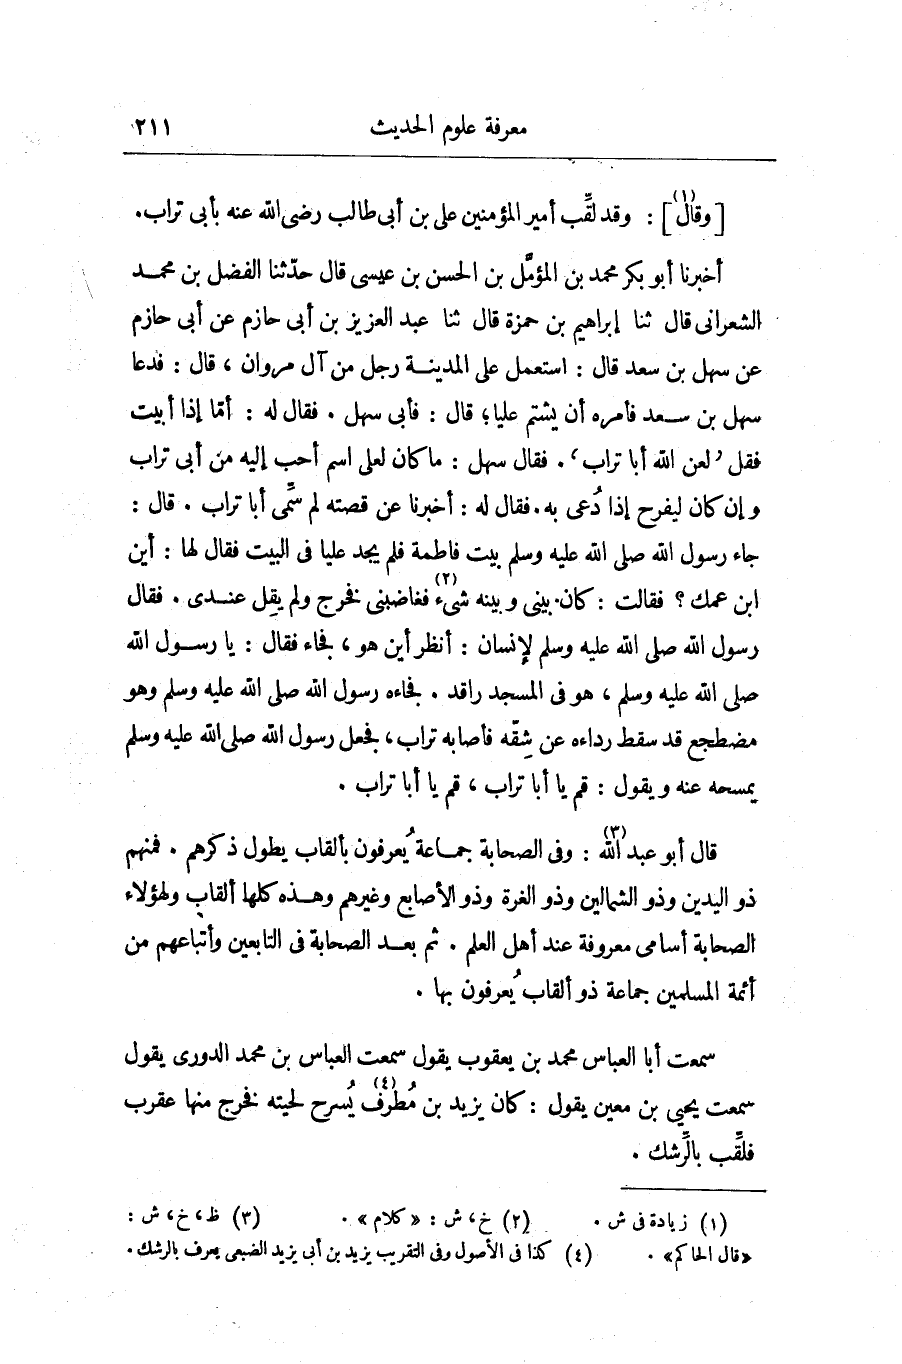 معرفة علوم الحديث ٢١١
[وقال(١)] : وقد لقِّب أمير المؤمنين على بن أبى طالب رضى الله عنه بأبى تراب.
أخبرنا أبو بكر محمد بن المؤمَّل بن الحسن بن عيسى قال حدّثنا الفضل بن محمد
الشعرانى قال ثنا إبراهيم بن حمزة قال ثنا عبد العزيز بن أبى حازم عن أبى حازم
عن سهل بن سعد قال : استعمل على المدينة رجل من آل مروان ، قال : فدعا
سهل بن سعد فأمره أن يشتم عليا، قال : فأبى سهل . فقال له : أمّا إذا أبيت
فقل ’لعن الله أبا تراب‘ . فقال سهل : ماكان لعلى اسم أحب إليه من أبى تراب
و إن كان ليفرح إذا دُعى به. فقال له : أخبرنا عن قصته لم سمِّى أبا تراب . قال :
جاء رسول الله صلى الله عليه وسلم بيت فاطمة فلم يجد عليا فى البيت فقال لها : أين
ابن عمك ؟ فقالت : كان بينى و بينه شىء(٢) فغاضبنى فخرج ولم يقِل عندى . فقال
رسول الله صلى الله عليه وسلم لإنسان : أنظر أين هو ، فجاء فقال : يا رسول الله
صلى الله عليه وسلم ، هو فى المسجد راقد . فجاءه رسول الله صلى الله عليه وسلم وهو
مضطجع قد سقط رداءه عن شِقّه فأصابه تراب، فجعل رسول الله صلى الله عليه وسلم
يمسحه عنه و يقول : قم يا أبا تراب ، قم يا أبا تراب .
قال أبو عبد الله(٣) : وفى الصحابة جماعة يُعرفون بألقاب يطول ذكرهم . فمنهم
ذو اليدين وذو الشمالين وذو الغرة وذو الأصابع وغيرهم وهذه كلها ألقاب ولهؤلاء
الصحابة أسامى معروفة عند أهل العلم . ثم بعد الصحابة فى التابعين وأتباعهم من
أئمة المسلمين جماعة ذو ألقاب يُعرفون بها .
سمعت أبا العباس محمد بن يعقوب يقول سمعت العباس بن محمد الدورى يقول
سمعت يحيى بن معين يقول : كان يزيد بن مُطرف(٤) يُسرح لحيته فخرج منها عقرب
فلقِّب بالرِّشك .
(١) زيادة فى ش . (٢) خ، ش : «كلام» . (٣) ظ، خ، ش :
«قال الحاكم» . (٤) كذا فى الأصول وفى التقريب يزيد بن أبى يزيد الضبعى يعرف بالرشك .